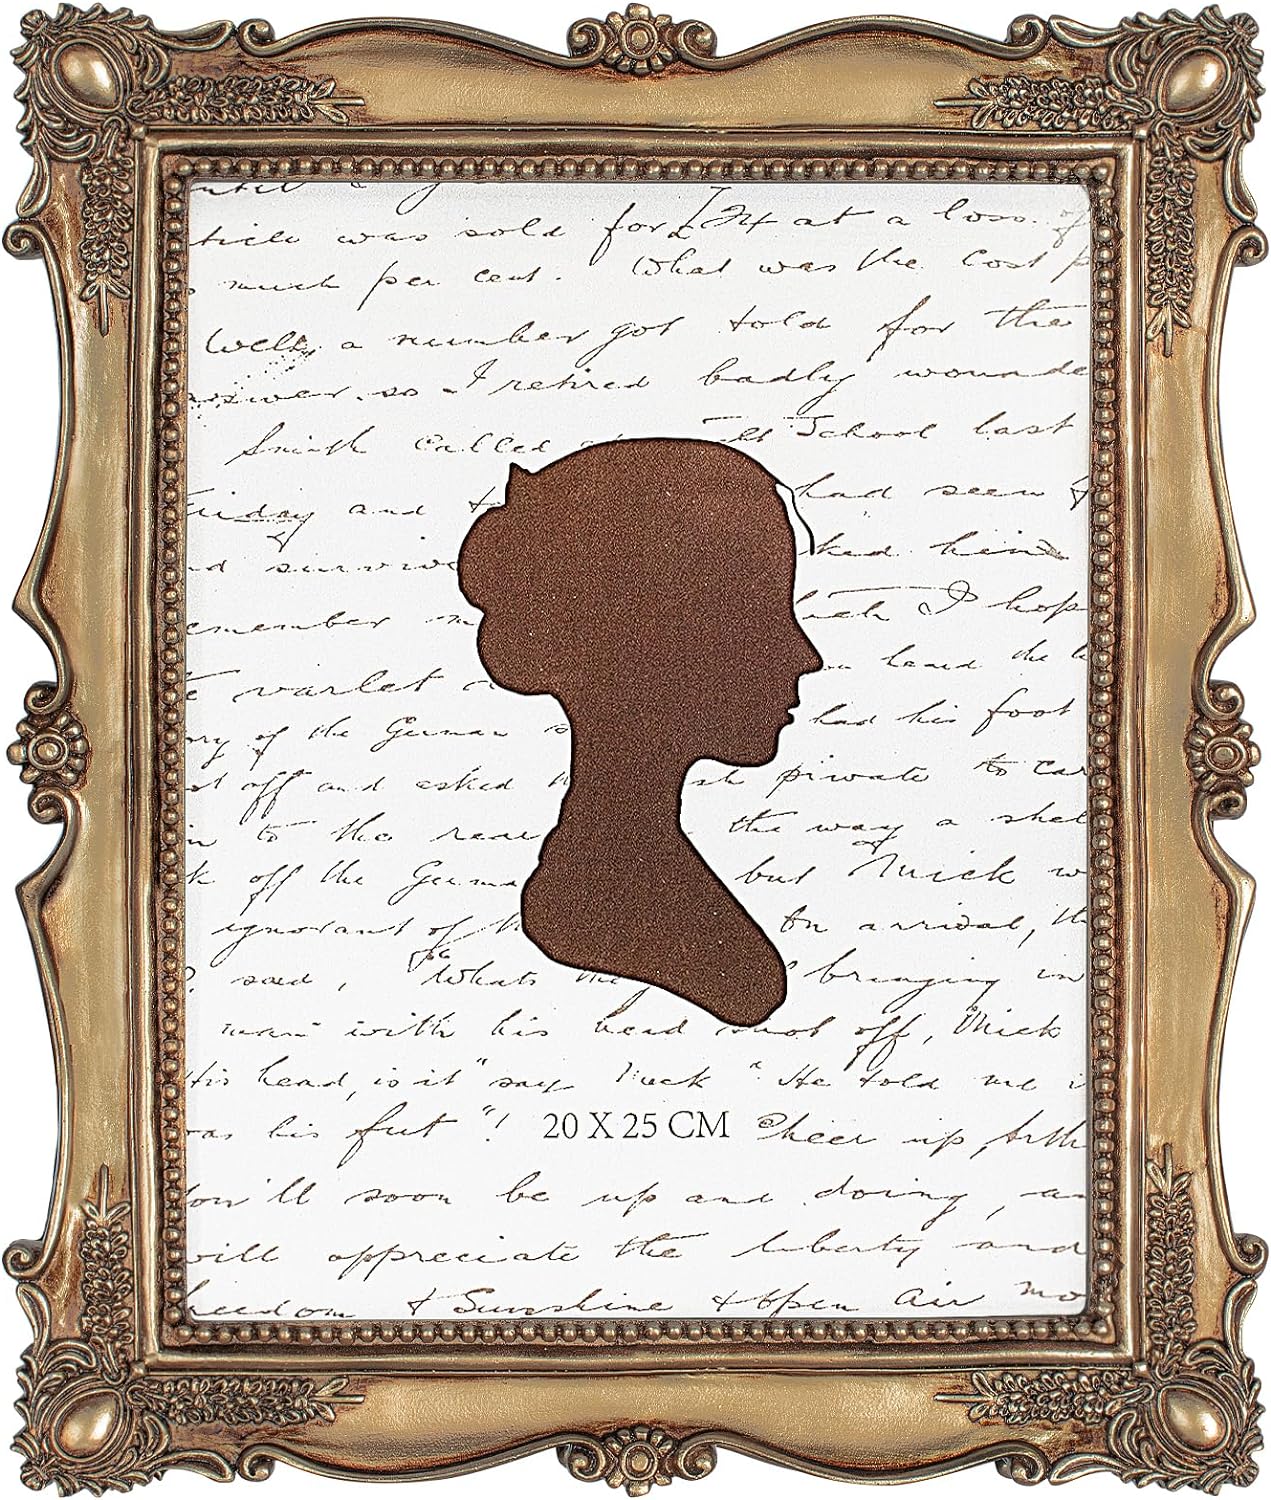 until a
ticle was sold for £74 at a loss of
much per cent. What was the Cost
Well, a number got told for the
answer. so I retired badly wounde
Smith Called School last
Friday and had seen
d surviv ked him
emember hich I hop
varlet heard the
ry of the German had his foot
t off and asked private to car
in to the rear the way a shel
k off the Germa but Mick w
ignorant of On arrival, th
? said, "Whats the bringing in
man with his head shot off, Mick
His head, is it" say Mick "He told me i
as his fut"! 20 X 25 CM Cheer up, Arth
ou'll soon be up and doing, an
will appreciate the liberty and
reedom & Sunshine & open air mo